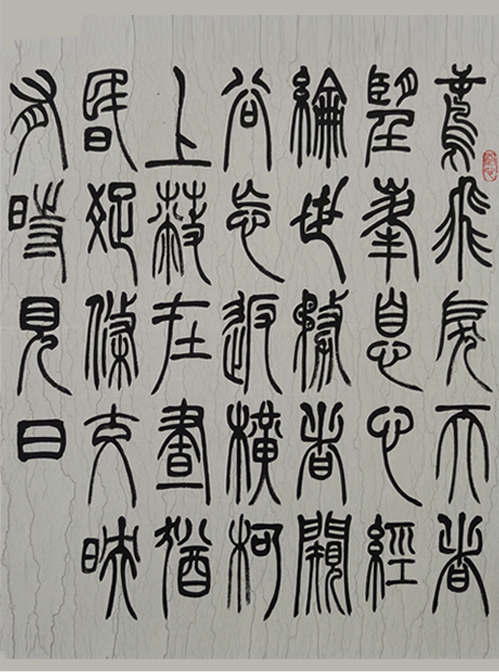 鳶飛戾天者
望峯息心經
綸世務者闚
谷忘返橫柯
上蔽在晝猶
昬疏條交映
有時見日